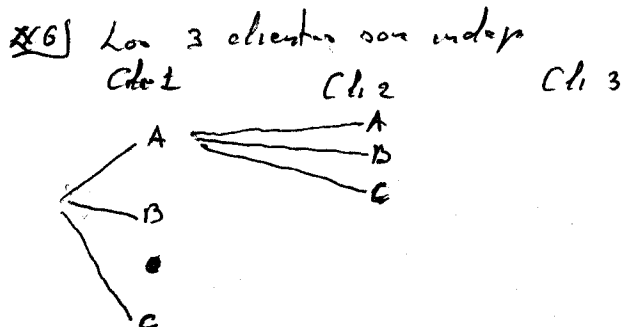 6) Los 3 clientes son indep
Cli 1 Cli 2 Cli 3
A A
B
C
B
C